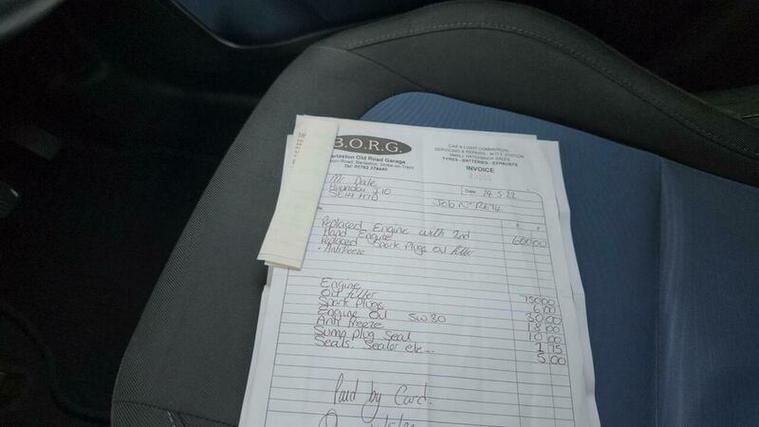 B.O.R.G.
Barlaston Old Road Garage
CAR & LIGHT COMMERCIAL
SERVICING & REPAIRS - M.O.T. STATION
TYRES - BATTERIES - EXHAUSTS
INVOICE
Mr. Dale
Hyundai I10
Date 24.5.22
Job No
Replaced Engine with 2nd
Hand Engine 600 00
Replaced Spark Plugs Oil filter
+ Antifreeze
Engine 750 00
Oil filter 6 00
Spark Plugs 30 00
Engine Oil 5W30 18 00
Anti freeze 10 00
Sump Plug Seal 1 75
Seals, Sealer etc... 5 00
Paid by Card.